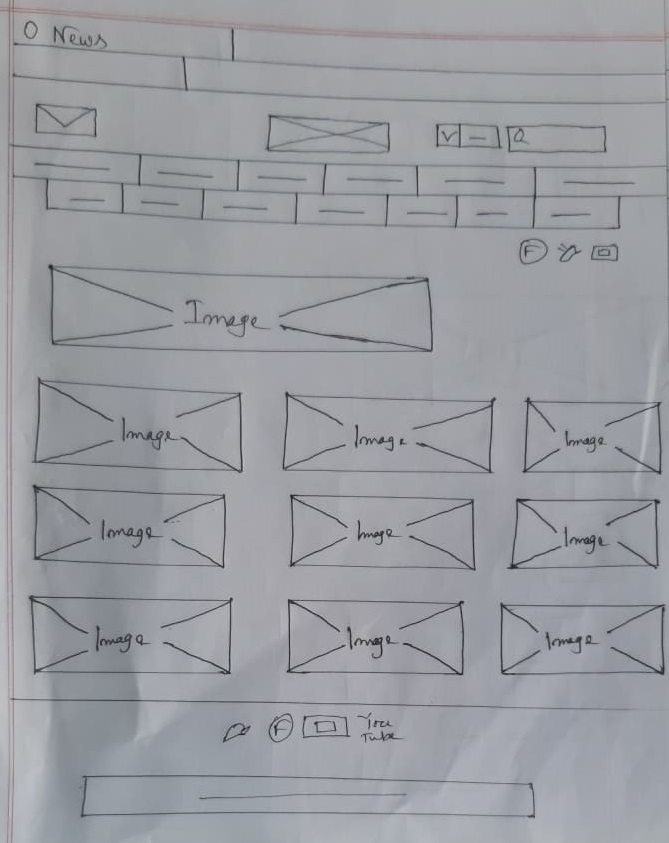 O News
F
Image
Image Image Image
Image Image Image
Image Image Image
F
You
Tube